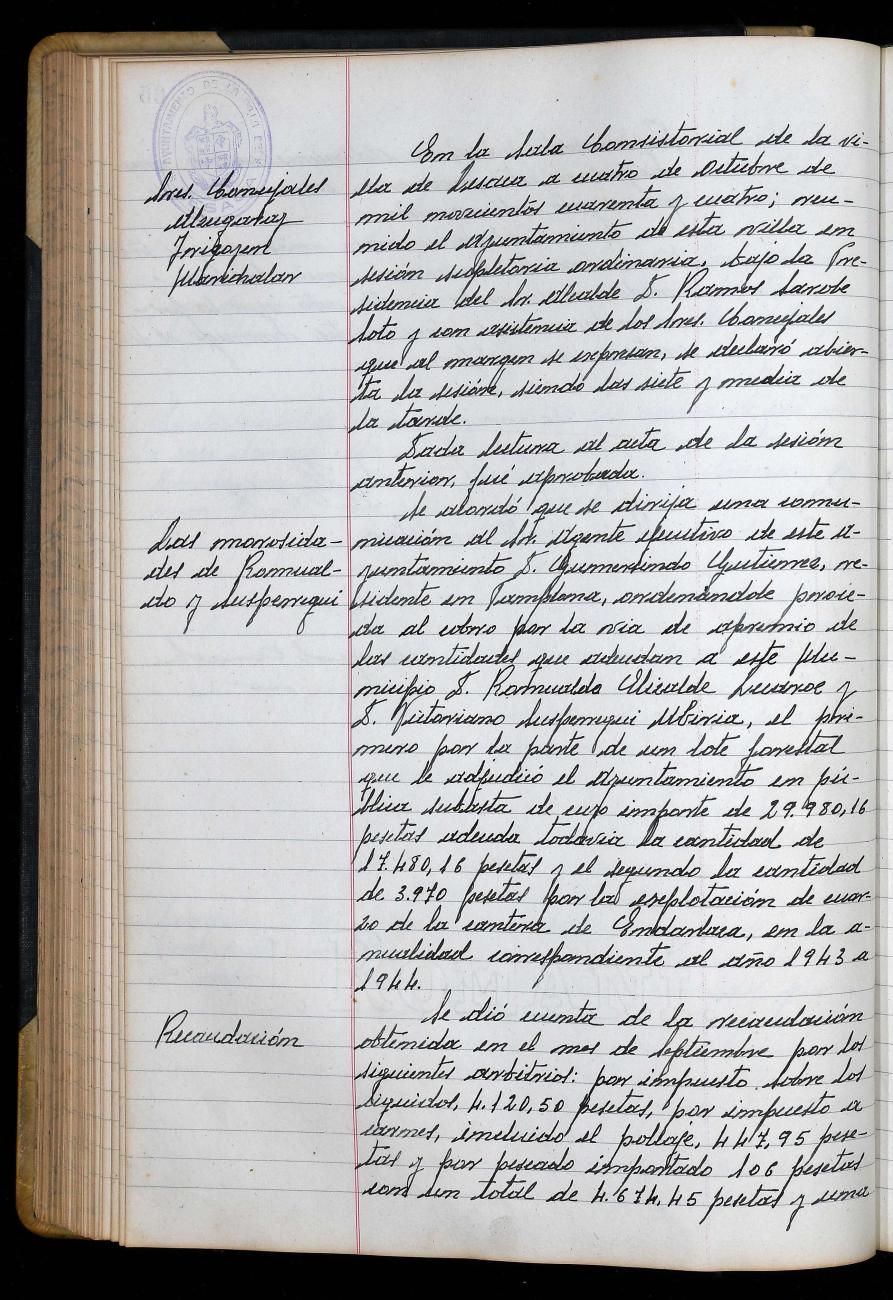 AYUNTAMIENTO DE LA
Sres. Concejales
Alzugaray
Irigoyen
Marichalar
En la Sala Consistorial de la vi-
lla de Lesaca a cuatro de Octubre de
mil novecientos cuarenta y cuatro; reu-
nido el Ayuntamiento de esta villa en
sesión supletoria ordinaria, bajo la Pre-
sidencia del Sr. Alcalde D. Ramos Sarobe
Soto y con asistencia de los Sres. Concejales
que al margen se expresan, se declaró abier-
ta la sesión, siendo las siete y media de
la tarde.
Dada lectura al acta de la sesión
anterior, fué aprobada.
Las morosida-
des de Romual-
do y Susperregui
Se acordó que se dirija una comu-
nicación al Sr. Agente ejecutivo de este A-
yuntamiento D. Gumersindo Gutiérrez, re-
sidente en Pamplona, ordenándole proce-
da al cobro por la via de apremio de
las cantidades que adeudan a este Mu-
nicipio D. Romualdo Elizalde y
D. Victoriano Susperregui Ubiria, el pri-
mero por la parte de un lote forestal
que le adjudicó el Ayuntamiento en pú-
blica subasta de cuyo importe de 29.980,16
pesetas adeuda todavia la cantidad de
17.480,16 pesetas y el segundo la cantidad
de 3.970 pesetas por la explotación de cuar-
zo de la cantera de Endarlaza, en la a-
nualidad correspondiente al año 1943 a
1944.
Recaudación
Se dió cuenta de la recaudación
obtenida en el mes de septiembre por los
siguientes arbitrios: por impuesto sobre los
liquidos, 4.120,50 pesetas, por impuesto a
carnes, incluido el pollaje, 447,95 pese-
tas y por pescado importado 106 pesetas
con un total de 4.674,45 pesetas y una